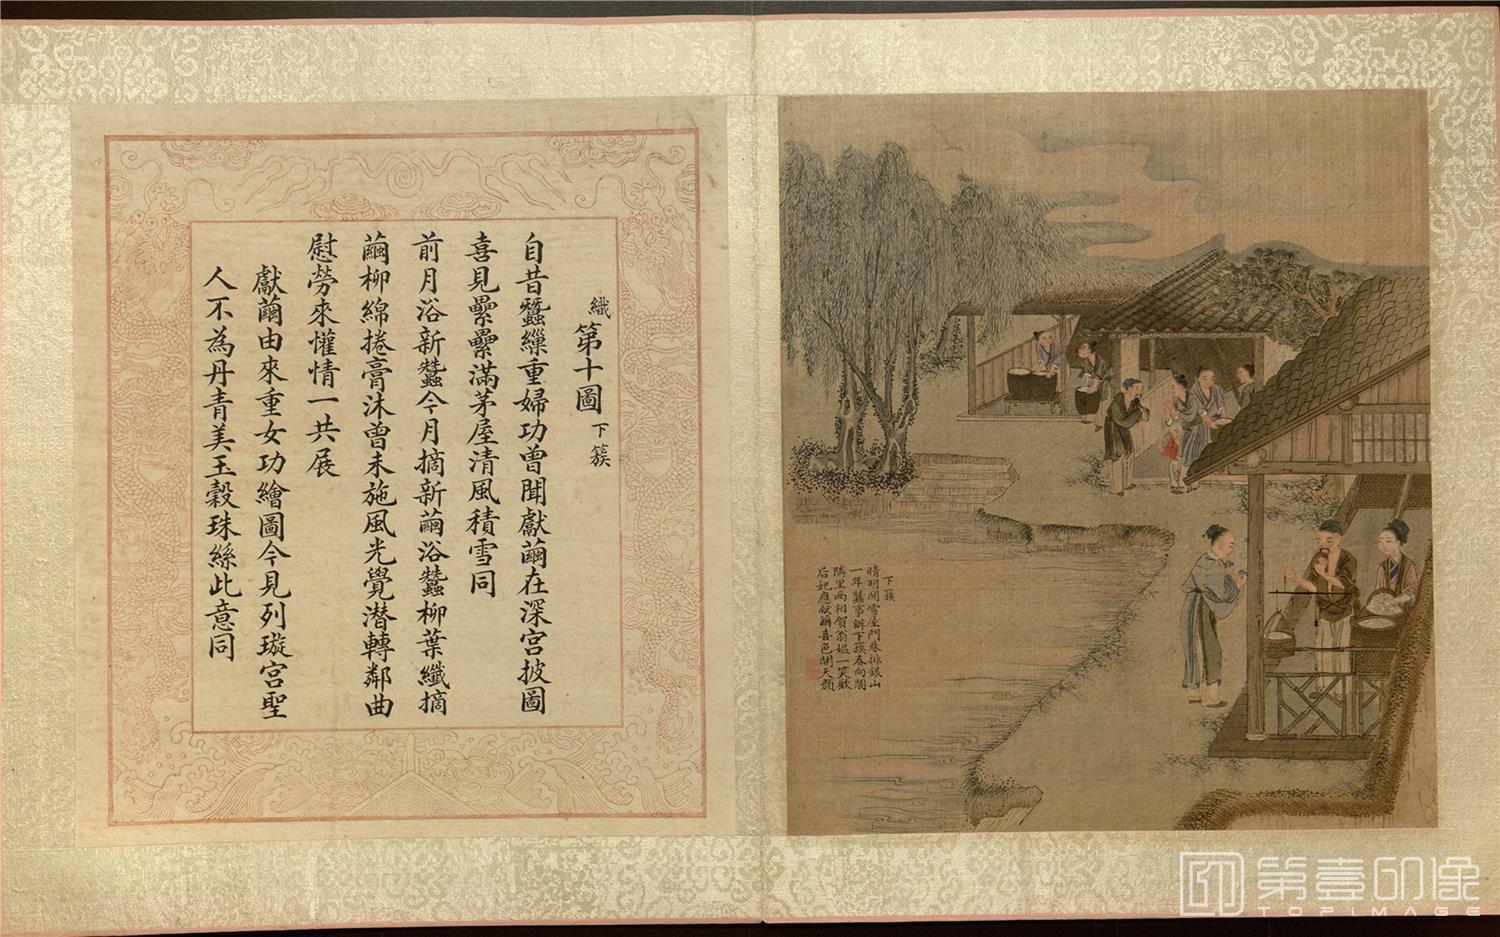 織 第十圖 下簇
自昔蠶繅重婦功曾聞獻繭在深宮披圖
喜見纍纍滿茅屋清風積雪同
前月浴新蠶今月摘新繭浴蠶柳葉纖摘
繭柳綿捲膏沐曾未施風光覺潛轉鄰曲
慰勞來懽情一共展
獻繭由來重女功繪圖今見列璇宮聖
人不為丹青美玉穀珠絲此意同
下簇
晴明開雪屋門巷排銀山
一年蠶事辦下簇春向闌
隣里兩相賀翁媼一笑歡
后妃應獻繭喜色開天顏
第壹印像
TOPIMAGE